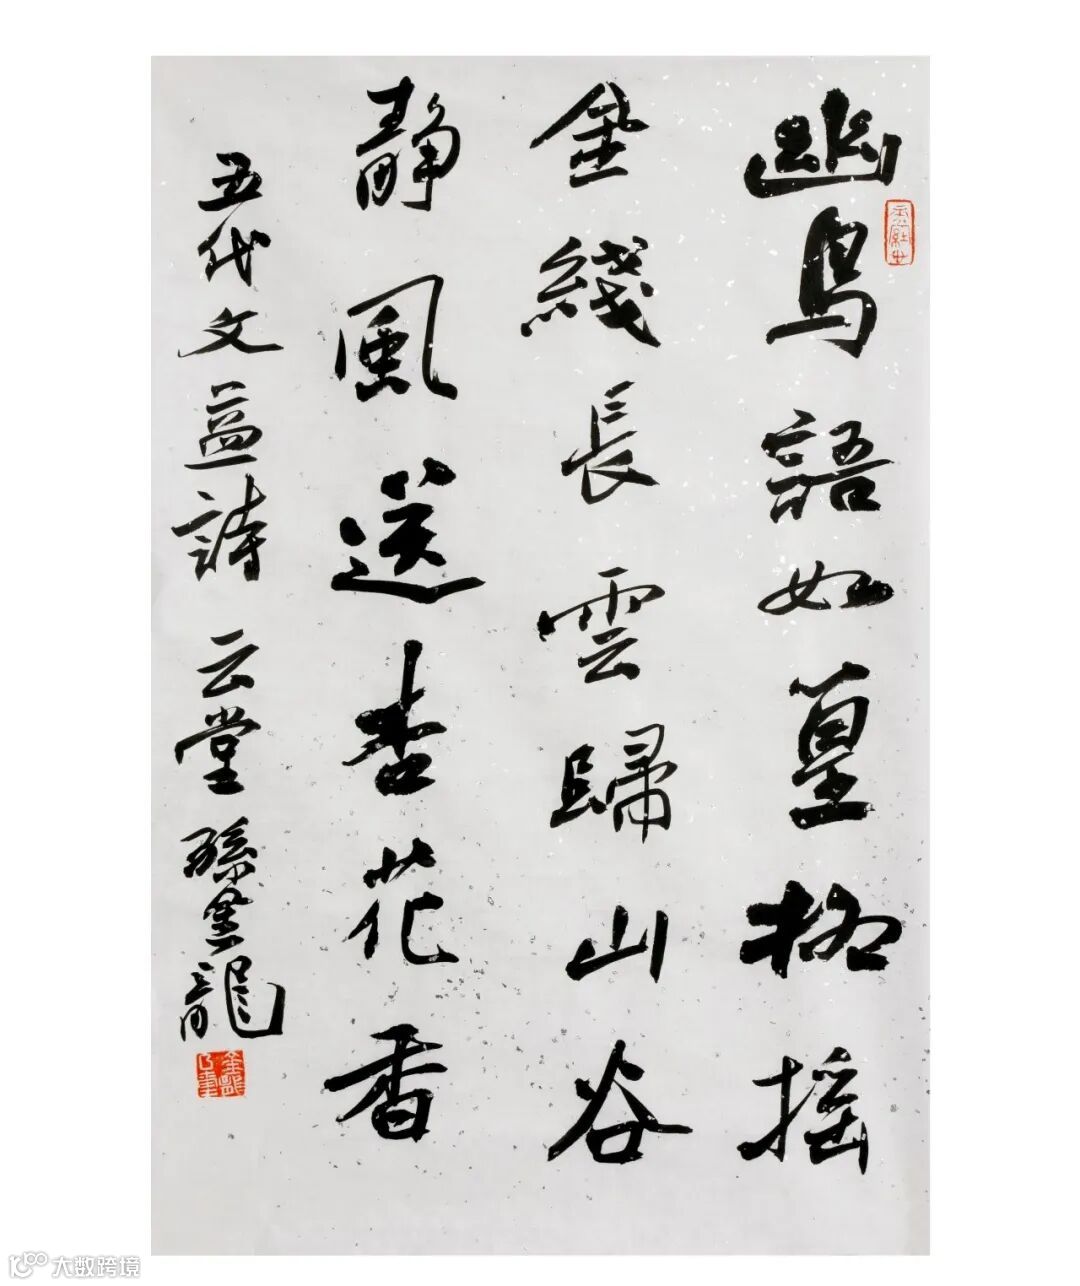 幽鳥語如篁柳搖
金綫長雲歸山谷
静風送杏花香
五代文益詩 云堂 孫金龍
大数跨境